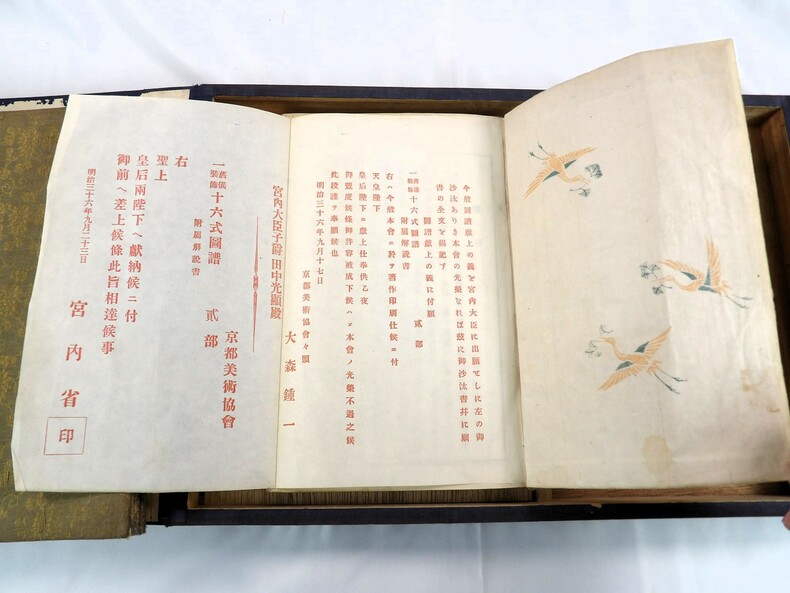 今般圖譜献上の義を宮内大臣に出願せしに左の御
沙汰ありき本會の光榮なれば茲に御沙汰書并に願
書の全文を揭記す
圖譜献上の義に付願
一舊儀裝飾十六式圖譜 貳部
附屬解說書
右ハ今般本會ニ於テ著作印刷仕候ニ付
天皇陛下
皇后陛下ニ献上仕奉供乙夜
御覽度候條御許容被成下候ハヽ本會ノ光榮不過之候
此段謹テ奉願候也
明治三十六年九月十七日
京都美術協會々頭
大森鍾一
宮內大臣子爵田中光顯殿
京都美術協會
一舊儀裝飾十六式圖譜 貳部
附屬解說書
右
聖上
皇后兩陛下ヘ献納候ニ付
御前ヘ差上候條此旨相達候事
明治三十六年九月二十三日
宮內省
印